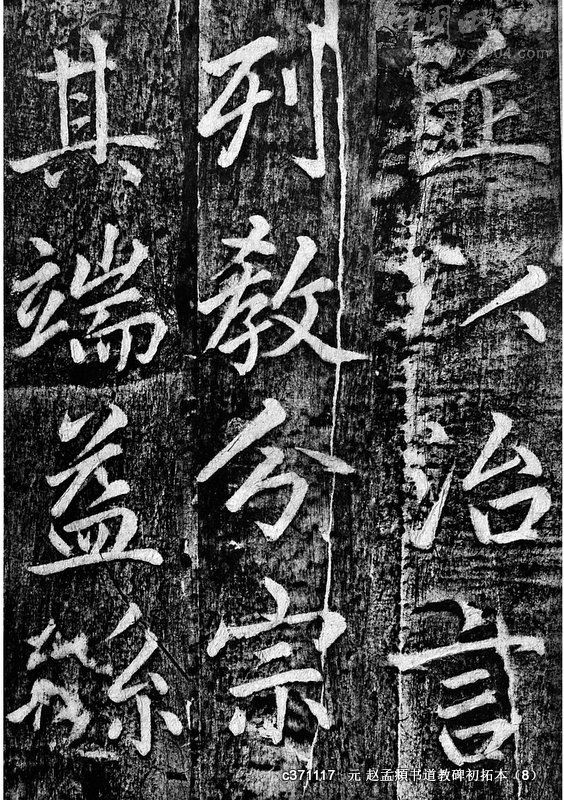 並以治言
列教分宗
其端益繇
c371117 元 赵孟頫书道教碑初拓本（8）